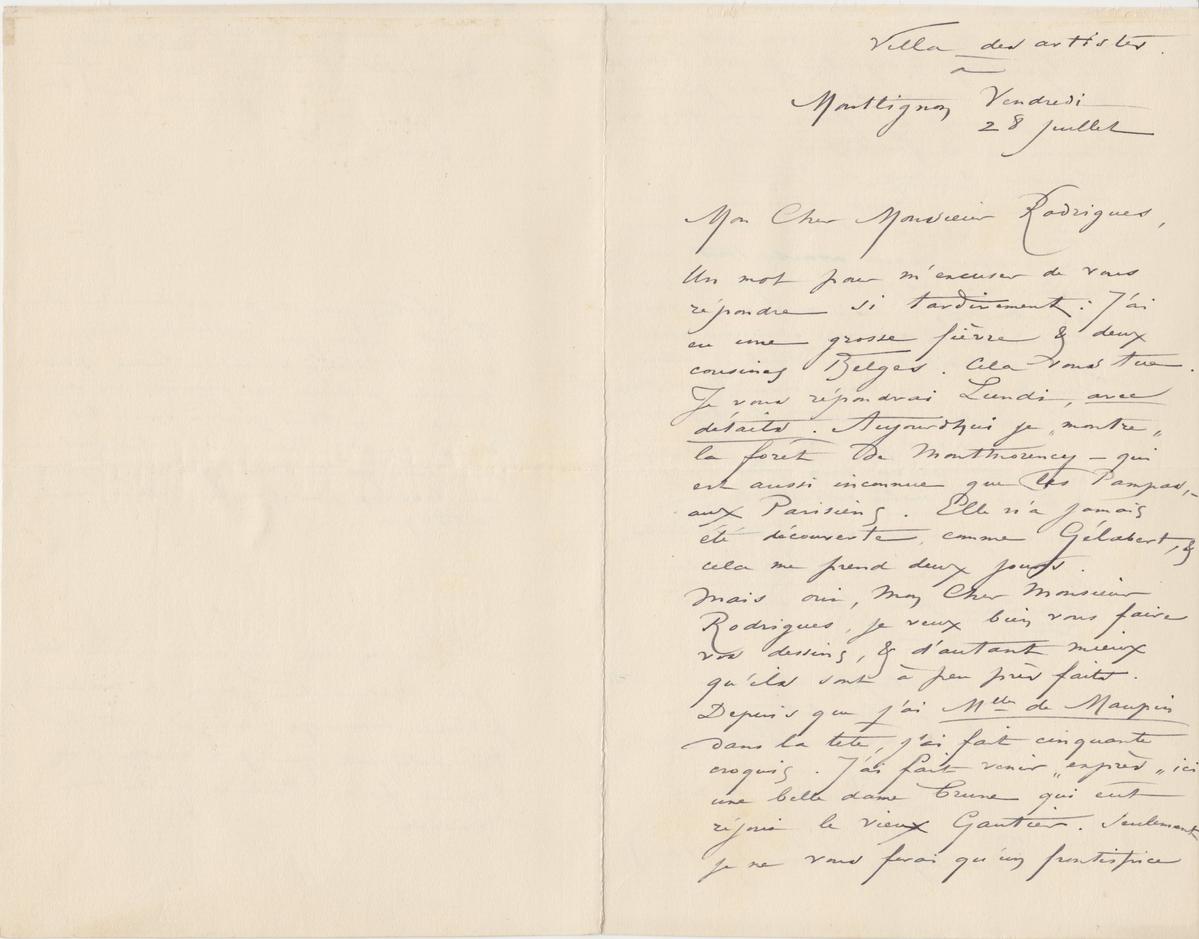 Villa des artistes.
à
Montlignon Vendredi
28 Juillet
Mon Cher Monsieur Rodrigues,
Un mot pour m'excuser de vous
répondre si tardivement : J'ai
eu une grosse fièvre & deux
cousines Belges. Cela vous tue.
Je vous répondrai Lundi, avec
détails. Aujourd'hui je „montre„
la forêt de Montmorency – qui
est aussi inconnue que les Pampas, –
aux Parisiens. Elle n'a jamais
été découverte, comme Gélabert, &
cela me prend deux jours.
Mais oui, Mon Cher Monsieur
Rodrigues, je veux bien vous faire
vos dessins, & d'autant mieux
qu'ils sont à peu près faits.
Depuis que j'ai Mlle de Maupin
dans la tête, j'ai fait cinquante
croquis. J'ai fait venir „exprès„ ici
une belle dame brune qui eut
réjoui le vieux Gautier. Seulement
je ne vous ferai qu'un frontispice